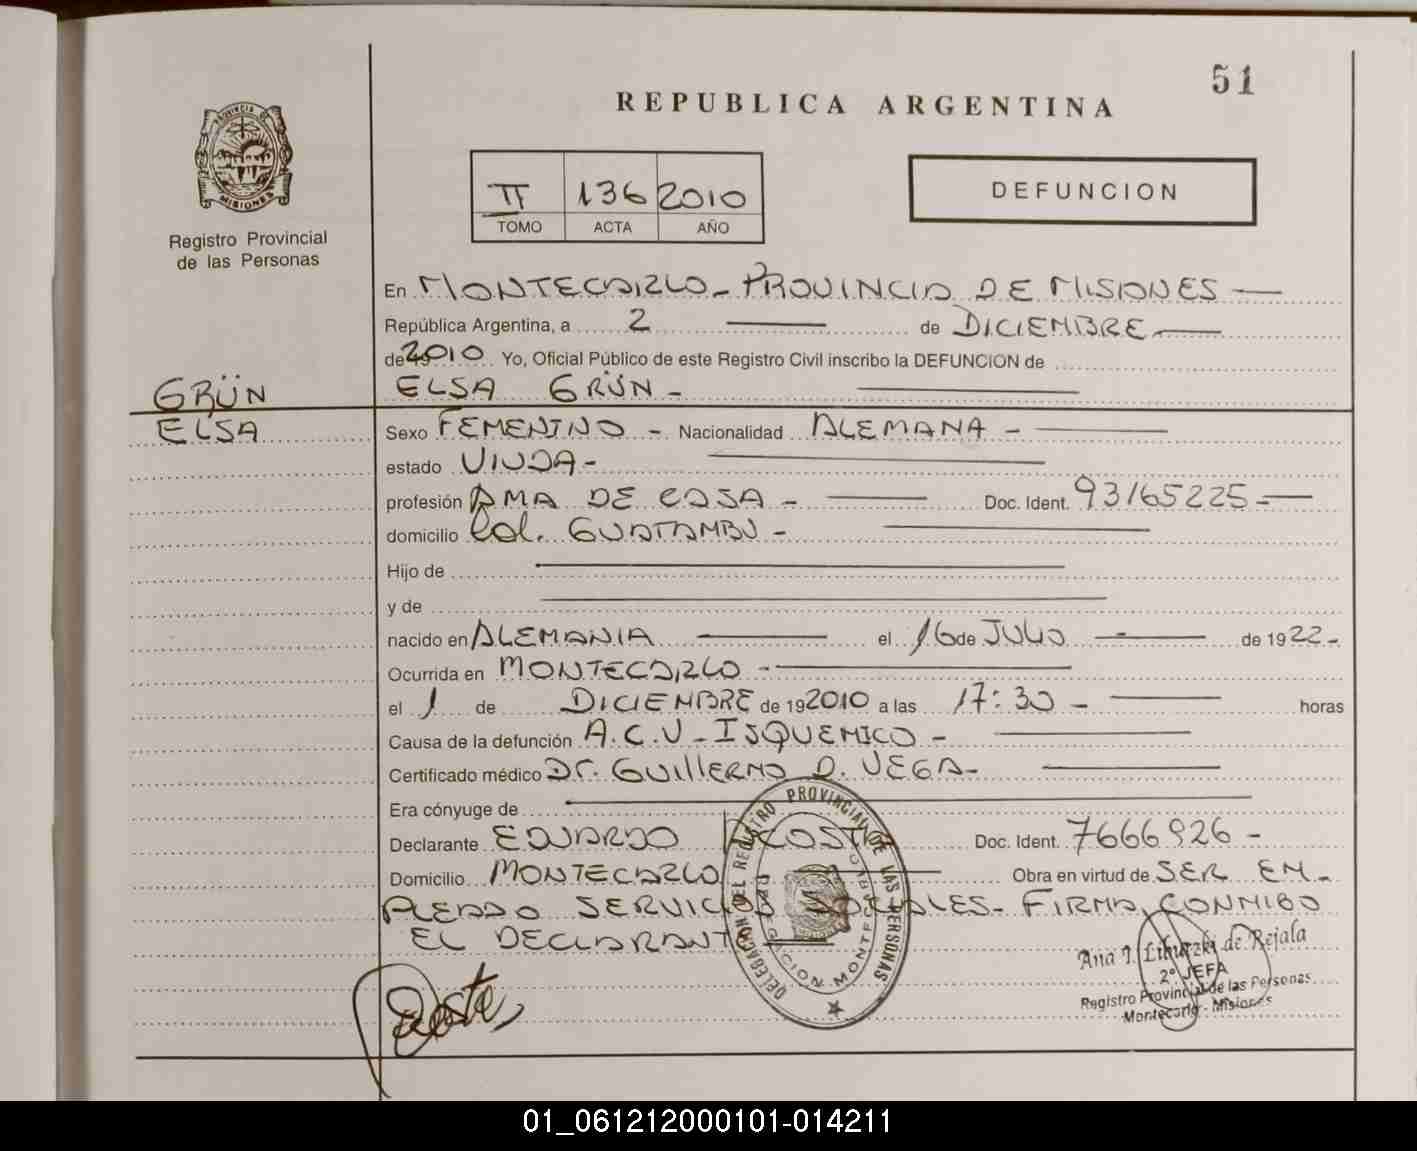 51
REPUBLICA ARGENTINA
PROVINCIA DE
MISIONES
Registro Provincial
de las Personas
II 136 2010
TOMO ACTA AÑO
DEFUNCION
En MONTECARLO - PROVINCIA DE MISIONES
República Argentina, a 2 de DICIEMBRE
de 2010 Yo, Oficial Público de este Registro Civil inscribo la DEFUNCION de
GRÜN ELSA GRÜN -
ELSA Sexo FEMENINO - Nacionalidad ALEMANA -
estado VIUDA -
profesión AMA DE CASA - Doc. Ident. 93165225 -
domicilio Col. GUATAMBU -
Hijo de
y de
nacido en ALEMANIA el 16 de JULIO - de 1922 -
Ocurrida en MONTECARLO -
el 1 de DICIEMBRE de 192010 a las 17:30 - horas
Causa de la defunción A.C.V - ISQUEMICO -
Certificado médico Dr. GUILLERMO D. VEGA -
Era cónyuge de
Declarante EDUARDO ACOSTA Doc. Ident. 7666926 -
Domicilio MONTECARLO Obra en virtud de SER EM-
PLEADO SERVICIOS SOCIALES - FIRMA CONMIGO
EL DECLARANTE
DELEGACION DEL REGISTRO PROVINCIAL DE LAS PERSONAS
Ana I. de Rejala
2° JEFA
Registro Provincial de las Personas
Montecarlo - Misiones
01_061212000101-014211